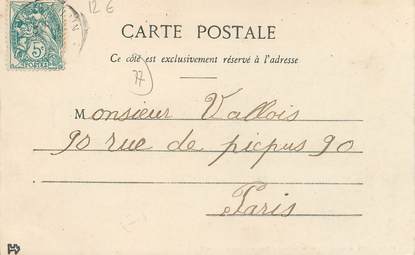 12 €
5c
POSTES
CARTE POSTALE
Ce côté est exclusivement réservé à l'adresse
77
Monsieur Vallois
90 rue de picpus 90
Paris